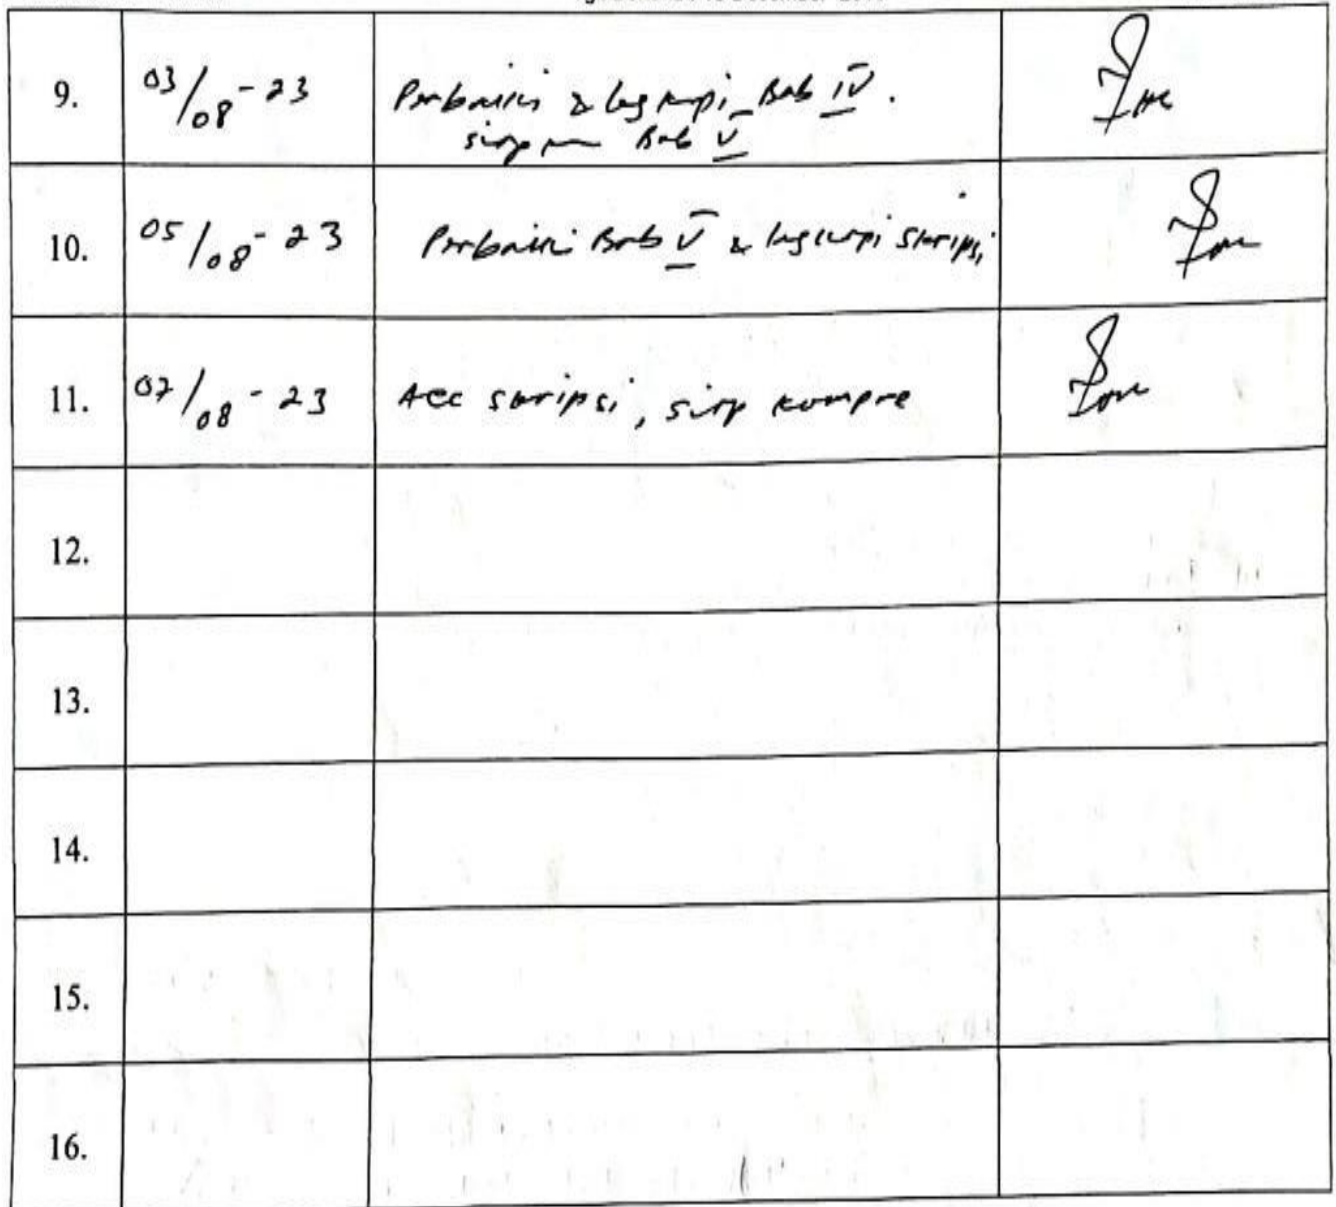 9. 03/08-23 Perbaiki & lengkapi Bab IV.
siapkan Bab V
10. 05/08-23 Perbaiki Bab V & lengkapi skripsi
11. 07/08-23 Acc skripsi, siap kompre
12.
13.
14.
15.
16.